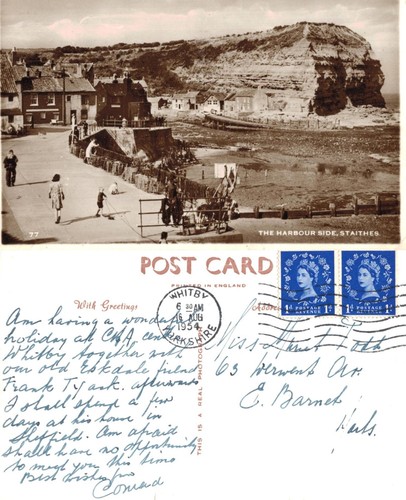 77
THE HARBOUR SIDE, STAITHES
POST CARD
PRINTED IN ENGLAND
With Greetings
Address
THIS IS A REAL PHOTOGRAPH
WHITBY
6 30 AM
16 AUG
1954
YORKSHIRE
1D POSTAGE REVENUE 1D
1D POSTAGE REVENUE 1D
Am having a wonderful
holiday at CHA, centre
Whitby together with
our old Eskdale friend
Frank T. afterwards
I shall spend a few
days at his house in
Sheffield. Am afraid
shall have no opportunity
to meet you this time
Best wishes from
Conrad
Miss
63 Derwent Av.
E. Barnet
Herts.